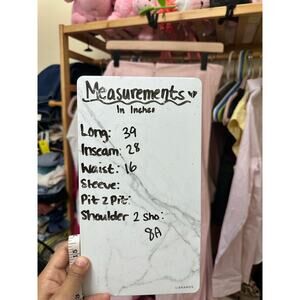 Measurements
In Inches
Long: 39
Inseam: 28
Waist: 16
Sleeve:
Pit 2 Pit:
Shoulder 2 Sho:
8A